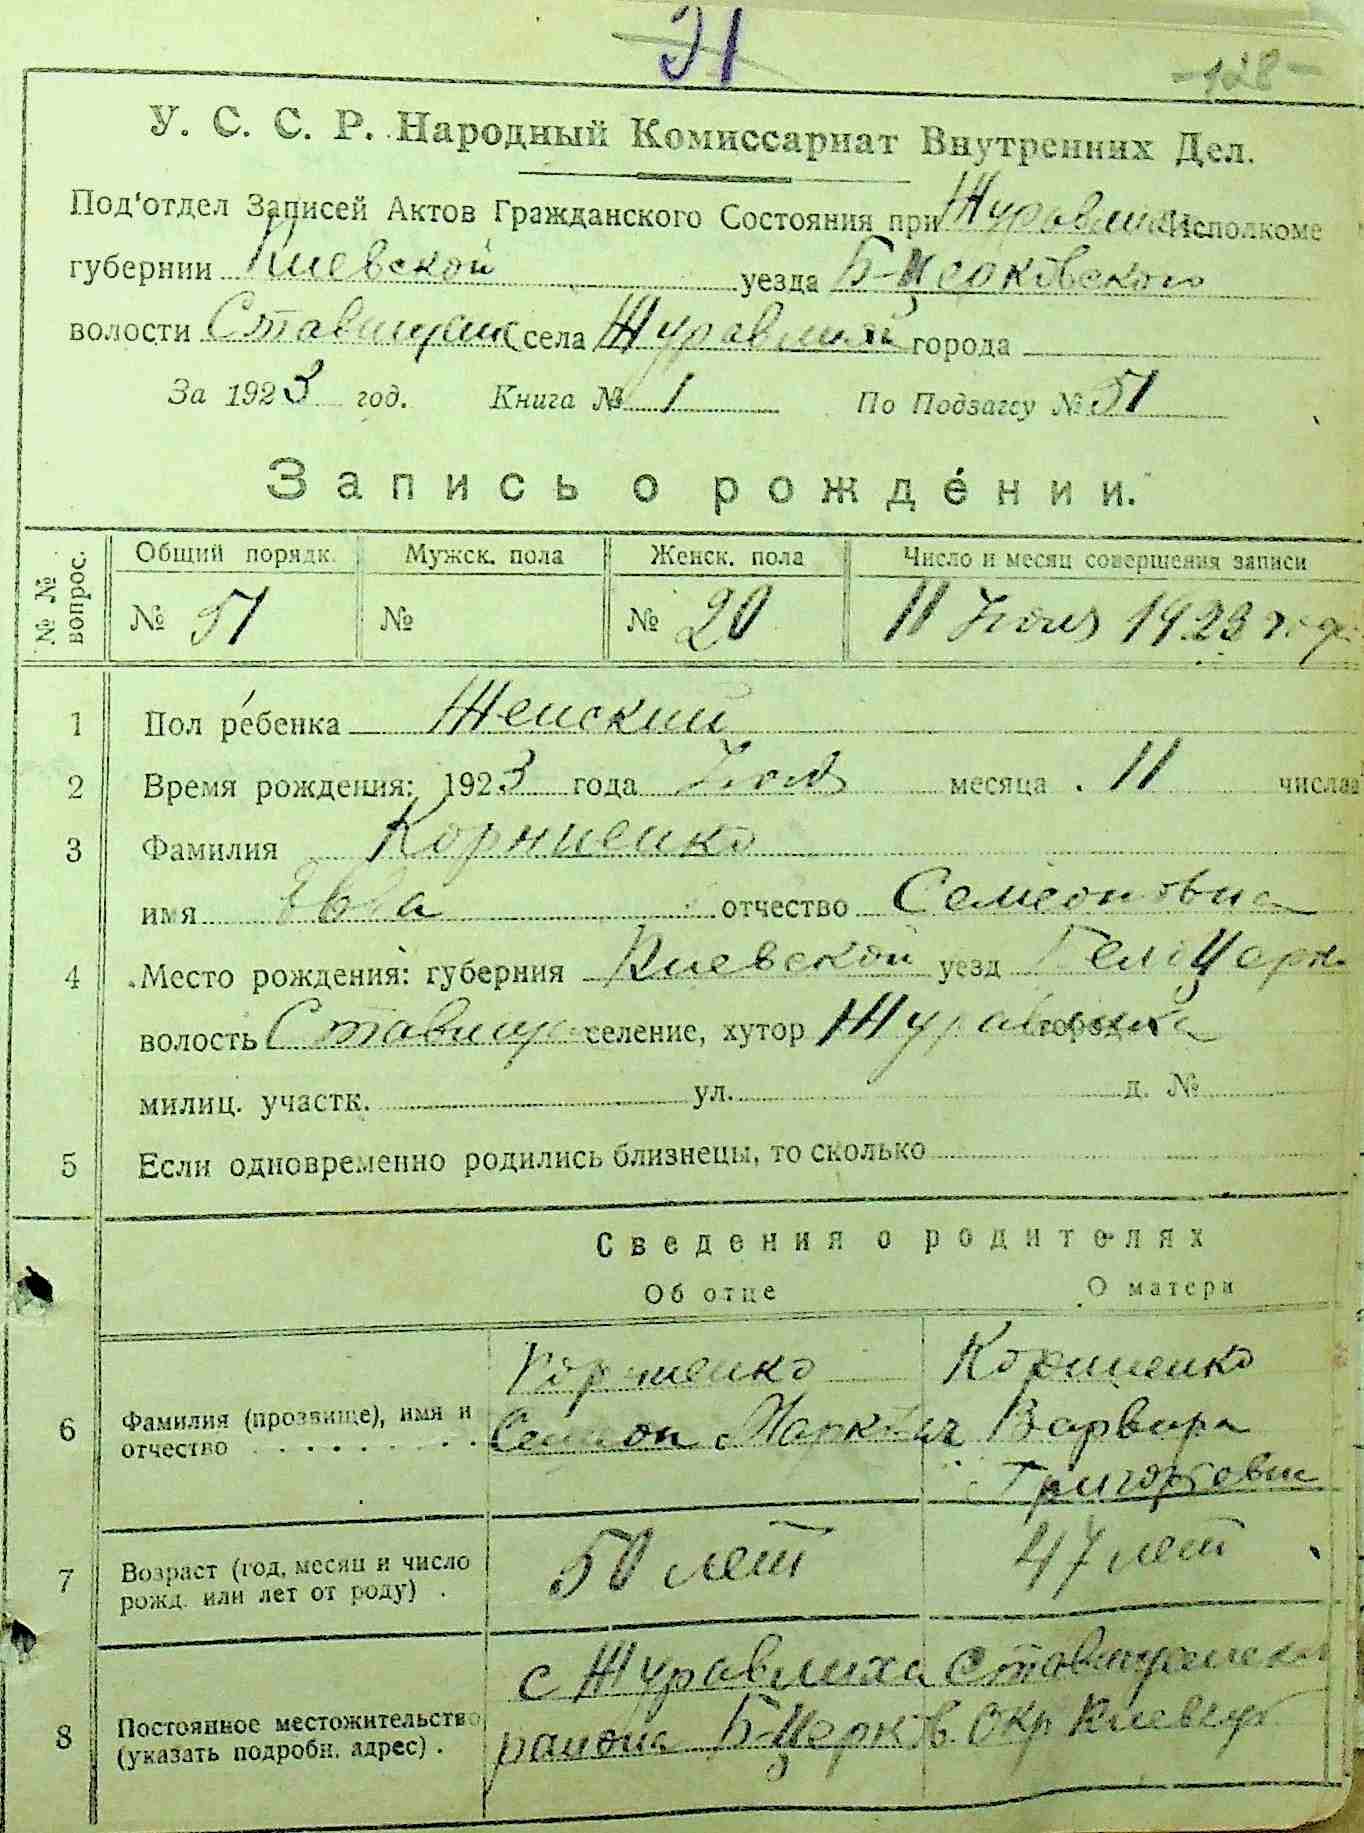 31
-128-
У. С. С. Р. Народный Комиссариат Внутренних Дел.
Под'отдел Записей Актов Гражданского Состояния при Журавлих Исполкоме
губернии Киевской уезда Б-Церковского
волости Ставищан села Журавлихи города
За 1923 год. Книга № 1 По Подзагсу № 51
Запись о рождении.
№ № вопрос. Общий порядк. Мужск. пола Женск. пола Число и месяц совершения записи
№ 51 № № 20 11 Июля 1923 года
1 Пол ребенка Женский
2 Время рождения: 1923 года Июля месяца 11 числа
3 Фамилия Корниенко
имя Евва отчество Семеоновна
4 Место рождения: губерния Киевской уезд Бело Церк.
волость Ставищ селение, хутор Журавлиха город
милиц. участк. ул. д. №
5 Если одновременно родились близнецы, то сколько
Сведения о родителях
Об отце О матери
Корниенко Корниенко
6 Фамилия (прозвище), имя и Семион Маркович Варвара
отчество Григорьевна
7 Возраст (год, месяц и число 50 лет 47 лет
рожд. или лет от роду)
с Журавлиха Ставищанско
8 Постоянное местожительство района Б-Церков. Окр Киев губ
(указать подробн. адрес).